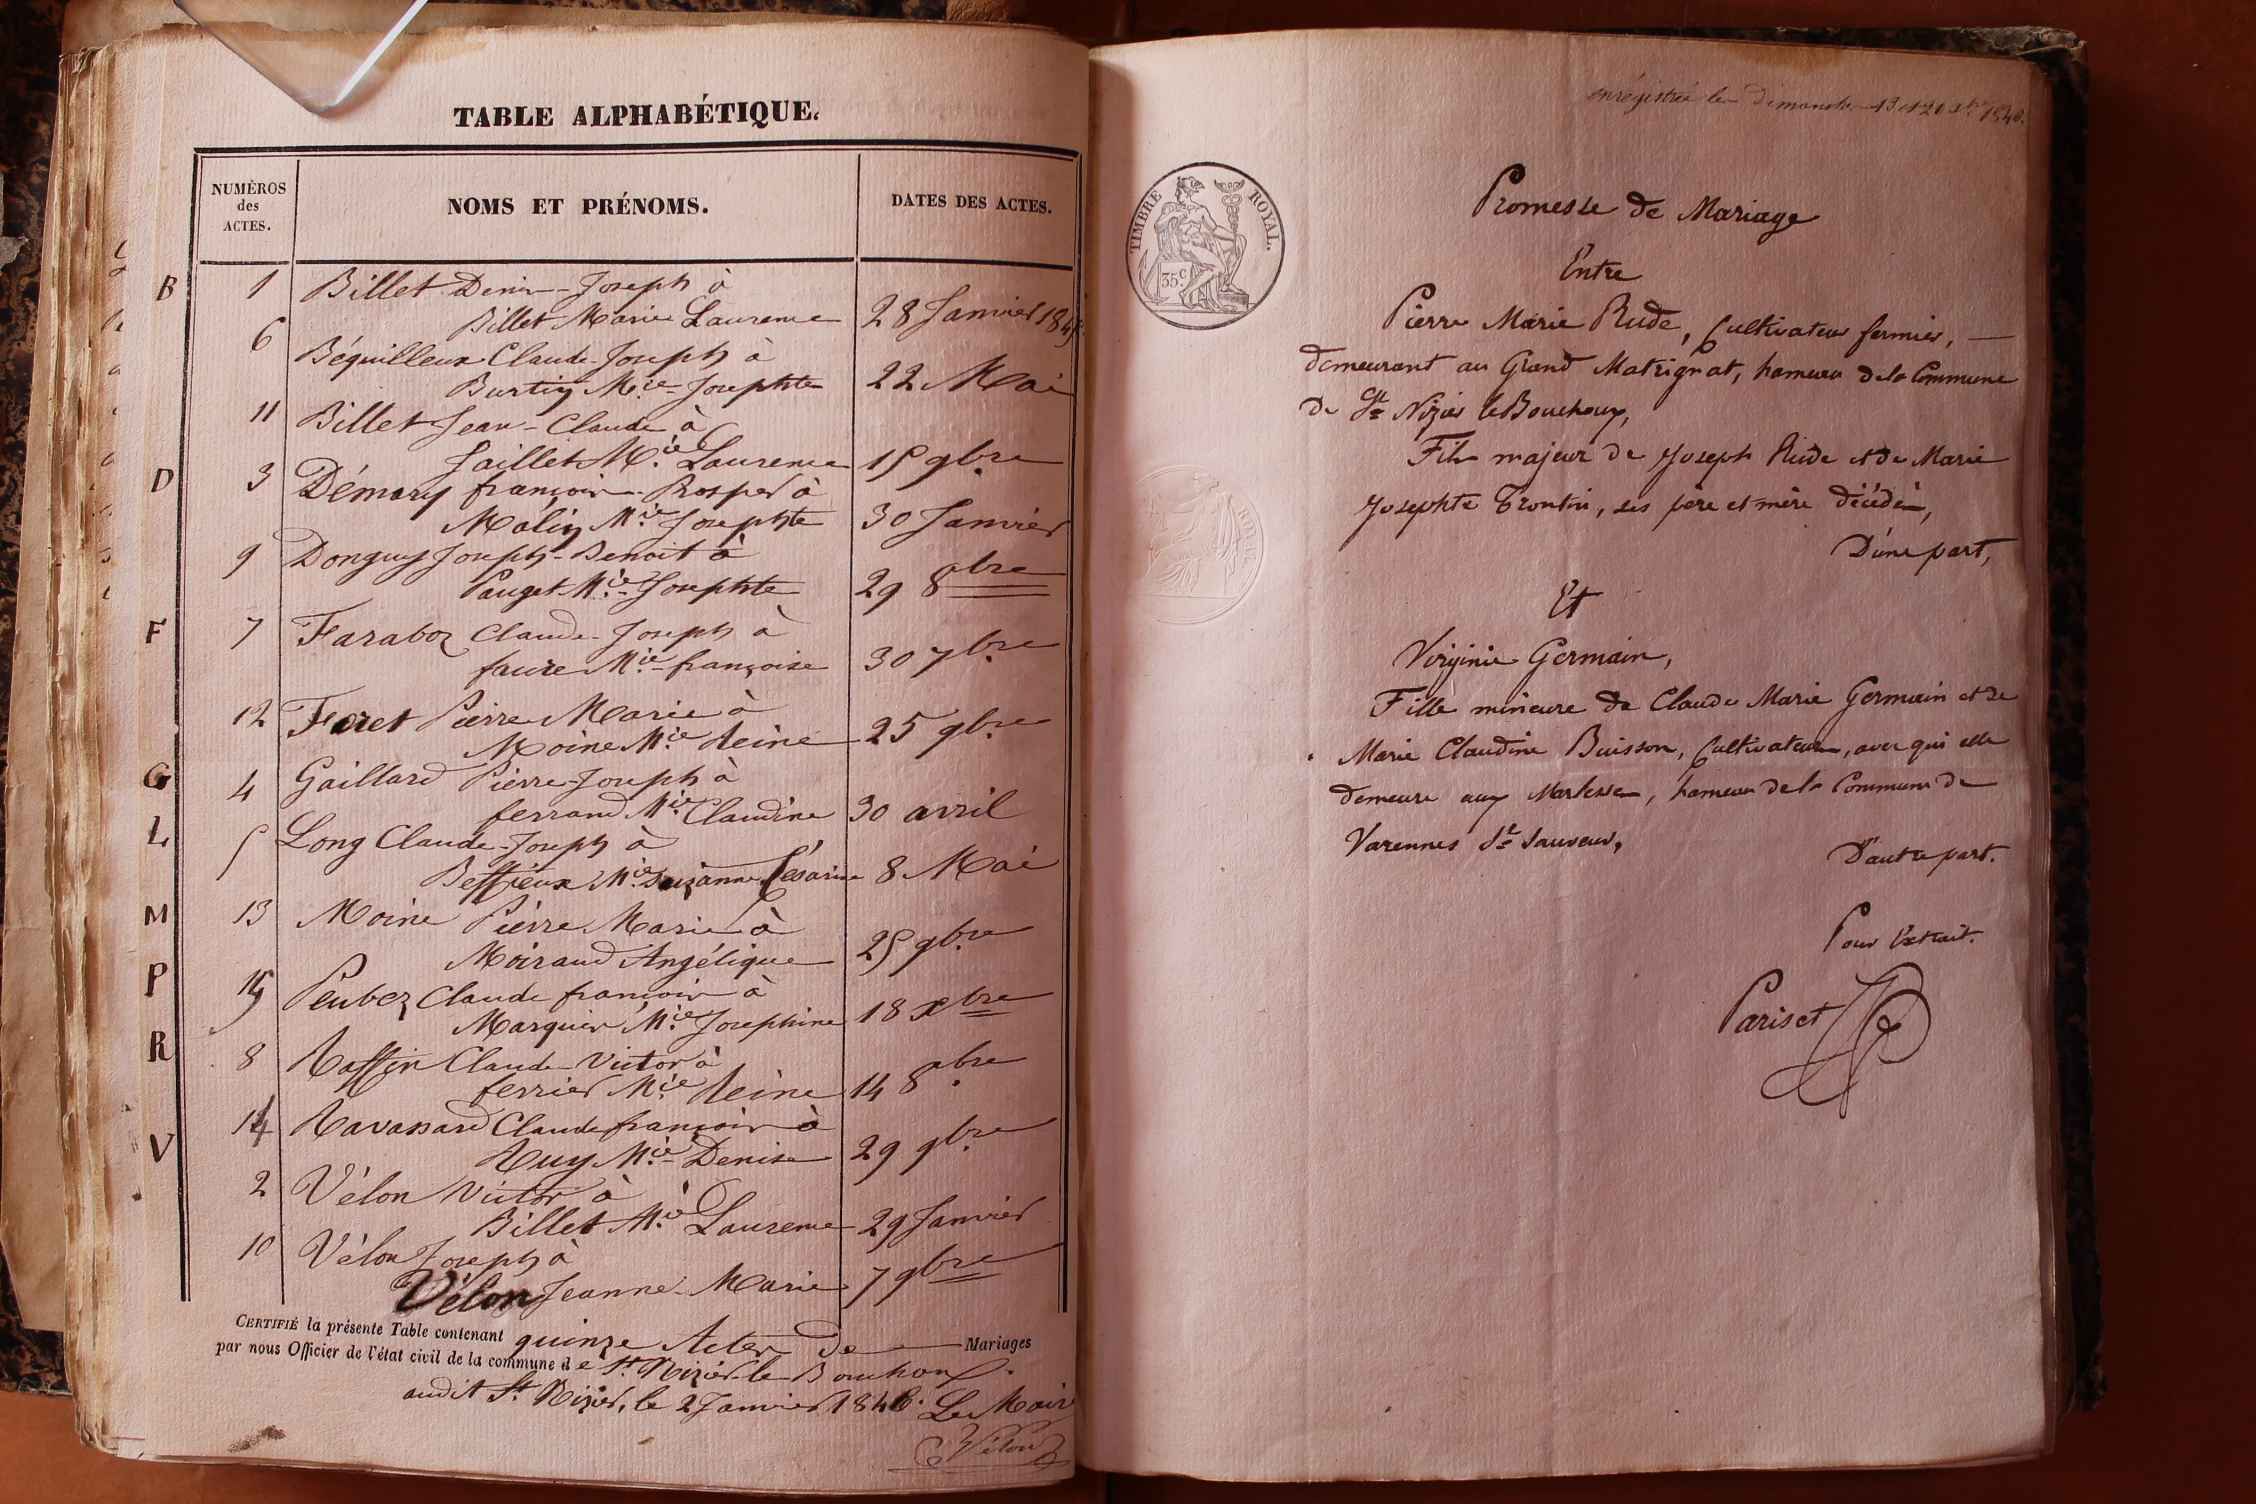 TABLE ALPHABÉTIQUE.
NUMÉROS
des
ACTES.
NOMS ET PRÉNOMS.
DATES DES ACTES.
B 1 Billet Denis-Joseph à
Billet Marie Laurence 28 Janvier
6 Béquilleux Claude-Joseph à
Burtin M.ie Josephte 22 Mai
11 Billet Jean-Claude à
Jaillet M.ie Laurence 15 9bre
D 3 Démary françois-Prosper à
M.ie Josephte 30 Janvier
9 Donguy Joseph-Benoit à
Pauget M.ie Josephte 29 8bre
F 7 Faraboz Claude-Joseph à
faure M.ie françoise 30 7bre
12 Feret Pierre Marie à
Moine M.ie Reine 25 9bre
G 4 Gaillard Pierre-Joseph à
ferrand M.ie Claudine 30 avril
L 5 Long Claude-Joseph à
M.ie Suzanne Césarine 8 Mai
M 13 Moine Pierre Marie à
Moirand Angélique 25 9bre
P 15 Peubez Claude françois à
Marquis M.ie Josephine 18 xbre
R 8 Raffin Claude Victor à
ferrier M.ie Reine 14 8bre
14 Ravassard Claude françois à
Ruy M.ie Denise 29 9bre
V 2 Vélon Victor à
Billet M.ie Laurence 29 Janvier
10 Vélon Joseph à
Vélon Jeanne-Marie 7 9bre
CERTIFIÉ la présente Table contenant quinze Actes de Mariages
par nous Officier de l'état civil de la commune de St. Nizier-le-Bouchoux.
audit St. Nizier, le 2 Janvier Le Maire
Vélon
enrégistrée les Dimanche 13 et 20 1840.
TIMBRE ROYAL.
35 c.
Promesse de Mariage
Entre
Pierre Marie Rude, Cultivateur fermier,
demeurant au Grand Matrignat, hameau de la Commune
de St Nizier le Bouchoux,
Fils majeur de Joseph Rude et de Marie
Josephte Trontin, ses père et mère décédés,
D'une part,
Et
Virginie Germain,
Fille mineure de Claude Marie Germain et de
Marie Claudine Buisson, Cultivateurs, avec qui elle
demeure aux hameau de la Commune de
Varennes St Sauveur,
D'autre part.
Pour Extrait.
Pariset